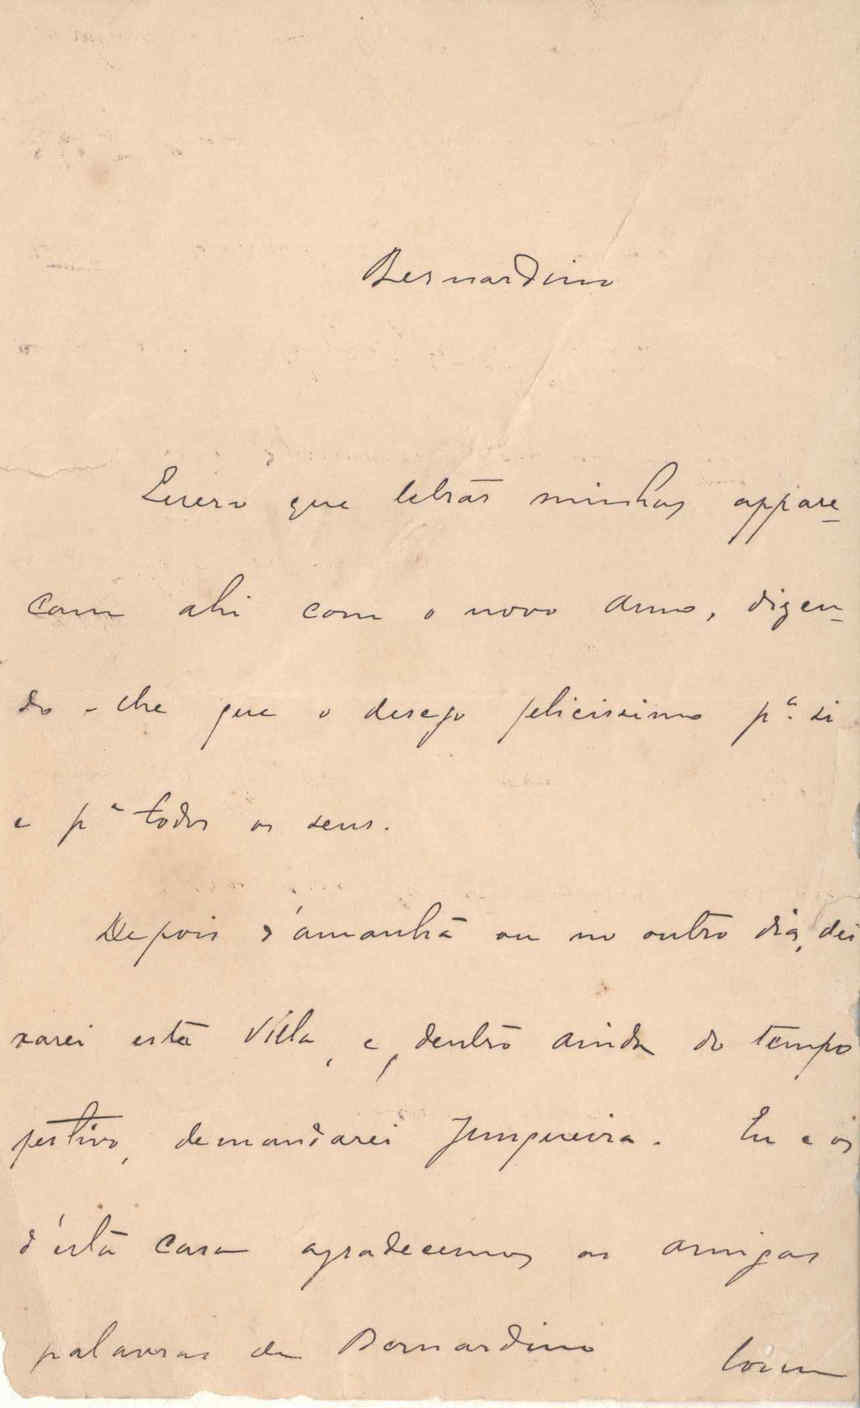 Bernardino
Quero que letras minhas appare-
çam ahi com o novo anno, dizen-
do-lhe que o desejo felicissimo pª. si
e pª todos os seus.
Depois d'amanhã ou no outro dia, dei
xarei esta Villa, e, dentro ainda do tempo
festivo, demandarei Junqueira. Eu e os
d'esta casa agradecemos as amigas
palavras de Bernardino